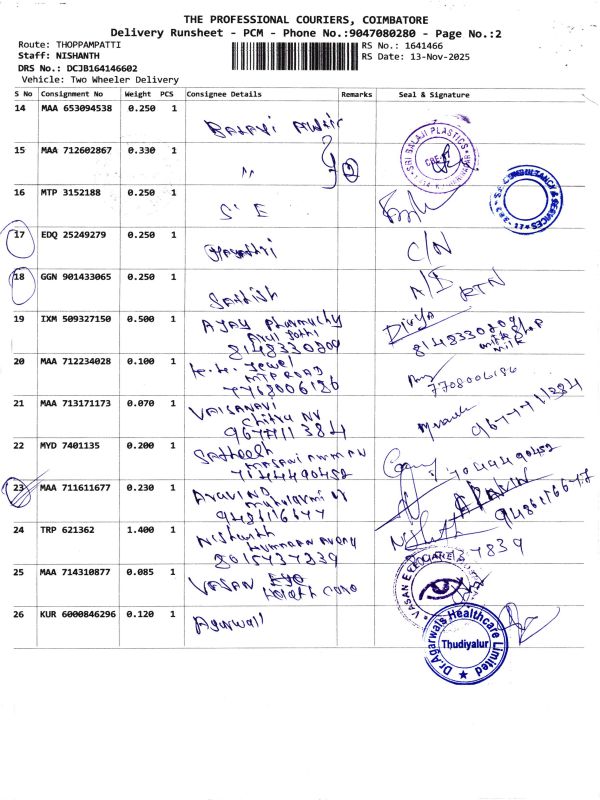 THE PROFESSIONAL COURIERS, COIMBATORE
Delivery Runsheet - PCM - Phone No.:9047080280 - Page No.:2
Route: THOPPAMPATTI
RS No.: 1641466
Staff: NISHANTH
RS Date: 13-Nov-2025
DRS No.: DCJB164146602
Vehicle: Two Wheeler Delivery
S No Consignment No Weight PCS Consignee Details Remarks Seal & Signature
14 MAA 653094538 0.250 1
SRI BALAJI PLASTICS
15 MAA 712602867 0.330 1 " 2
16 MTP 3152188 0.250 1 S. E
S.E. CONSULTANCY & SERVICES
17 EDQ 25249279 0.250 1 Gayathri C/N
18 GGN 901433065 0.250 1 Sathish A/S RTN
19 IXM 509327150 0.500 1 AJAY Pharmacy Divya
8148330809 8148330809
milk
20 MAA 712234028 0.100 1 Jewel
MTP ROAD
7708006186 7708006186
21 MAA 713171173 0.070 1 VAISANAVI
Chitra NV
22 MYD 7401135 0.200 1 Satheesh
7044490452 7044490452
23 MAA 711611677 0.230 1 Aravind ARAVIN
9486116677 9486116677
24 TRP 621362 1.400 1 Nishanth Nishanth
8015737839 37839
25 MAA 714310877 0.085 1 VASAN Eye
Health Care
VASAN EYE CARE
26 KUR 6000846296 0.120 1 Agarwall
Dr.Agarwals Healthcare Limited
Thudiyalur